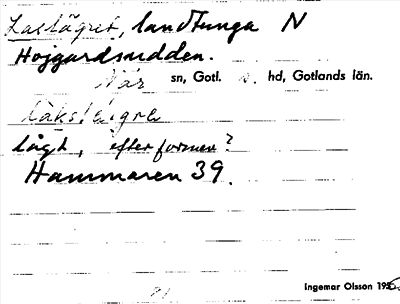 Lastägret, landtunga N
Hojgardsudden.
När sn, Gotl. hd, Gotlands län.
lågt, efter formen?
Hammaren 39.
Ingemar Olsson 195